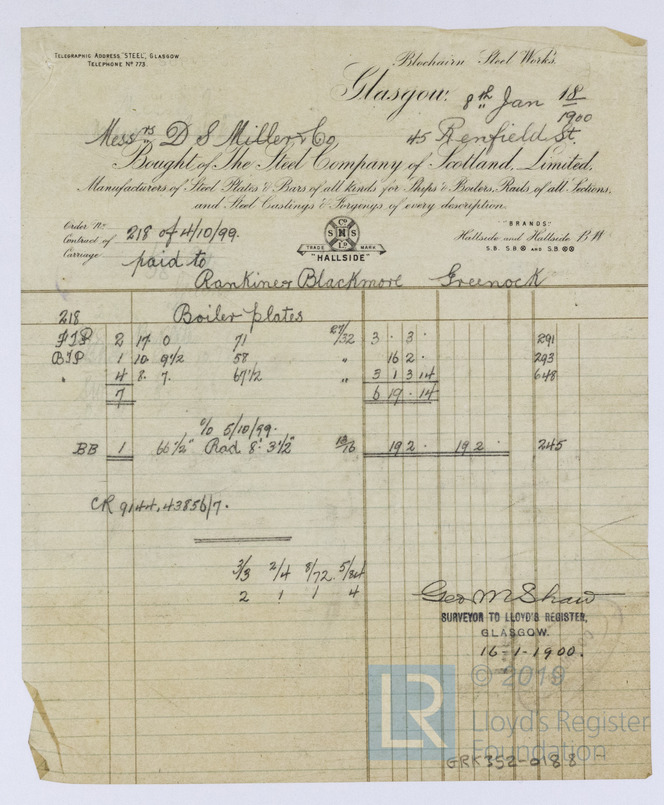 TELEGRAPHIC ADDRESS "STEEL", GLASGOW
TELEPHONE Nº 773.
Blochairn Steel Works.
Glasgow. 8th Jan 18/1900
Messrs D S Miller & Co 45 Renfield St.
Bought of The Steel Company of Scotland, Limited,
Manufacturers of Steel Plates & Bars of all kinds for Ships & Boilers, Rails, of all Sections,
and Steel Castings & Forgings, of every description.
Order No
Contract of 218 of 4/10/99.
Carriage paid to
Co
S N S
Ld
TRADE MARK
"HALLSIDE"
"BRANDS"
Hallside and Hallside B W
S.B. S.B® AND S.B®®
Rankine & Blackmore Greenock
218 Boiler plates
FTP 2 17 0 71 27/32 3 . 3 . 291
BTP 1 10 9 1/2 58 " 16 2 . 293
" 4 8. 7. 67 1/2 " 3 1 3 14 648
7 6 19 . 14
% 5/10/99.
BB 1 66 1/2" Rad 8' 3 1/2" 13/16 19 2 . 19 2 . 245
CR 9144. 43856/7.
3/3 2/4 8/72. 5/84
2 1 1 4
Geo M Shaw
SURVEYOR TO LLOYD'S REGISTER,
GLASGOW.
16-1-1900.
LR
© 2019
Lloyd's Register
Foundation
GRK352-0188